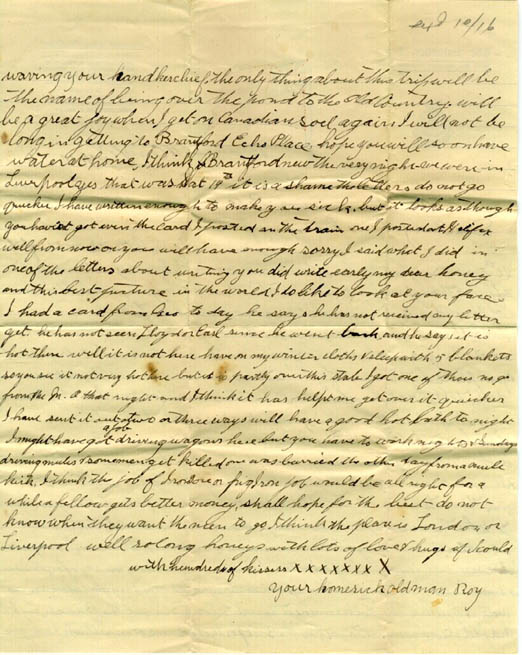 waving your handkerchief, the only thing about this trip will be
the name of being over the pond to the Old Country, will
be a great joy when I get on Canadian soil again I will not be
long in getting to Brantford Echo Place, hope you will soon have
water at home, I think Brantford new the very night we were in
Liverpool yes that was Sat 19th it is a shame the letters do not go
quicker I have written enough to make you sick, but it looks as though
you have not got even the card I posted on the train one I posted at
well from now on you will have enough sorry I said what I did in
one of the letters about writing you did write early my dear honey
and this best picture in the world I do like to look at your face
I had a card from Geo to day he say s he has not received any letter
yet he has not seen Lloyd or Earl since he went back and he say s it is
hot there well it is not here have on my winter cloths & sleep with 5 blankets
so you see it not very hot here but it is partly over this state I got one of those no go
from the M. O that night and I think it has helpt me get over it quicker
I have sent it out two or three ways will have a good hot bath to night
I might have got a job driving wagons here but you have to work night & Sundays
driving mules & some men get killed one was burried the other day from a mule
kick I think the job of would be all right for a
while a fellow gets better money, shall hope for the best do not
know when they want the men to go I think the place is London or
Liverpool well so long honey with lots of love & hugs if I could
with hundreds of kisses x x x x x x x X
Your homesick old man Roy